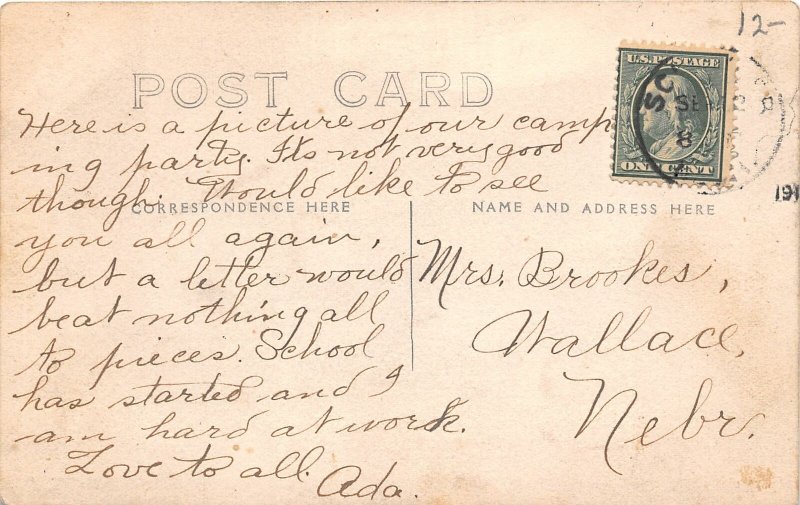 12-
U.S. POSTAGE
ONE CENT
SE
8
191
POST CARD
Here is a picture of our camp
ing party. Its not very good
though. Would like to see
CORRESPONDENCE HERE
you all again,
but a letter would
beat nothing all
to pieces. School
has started and I
am hard at work.
Love to all.
Ada.
NAME AND ADDRESS HERE
Mrs. Brookes,
Wallace,
Nebr.